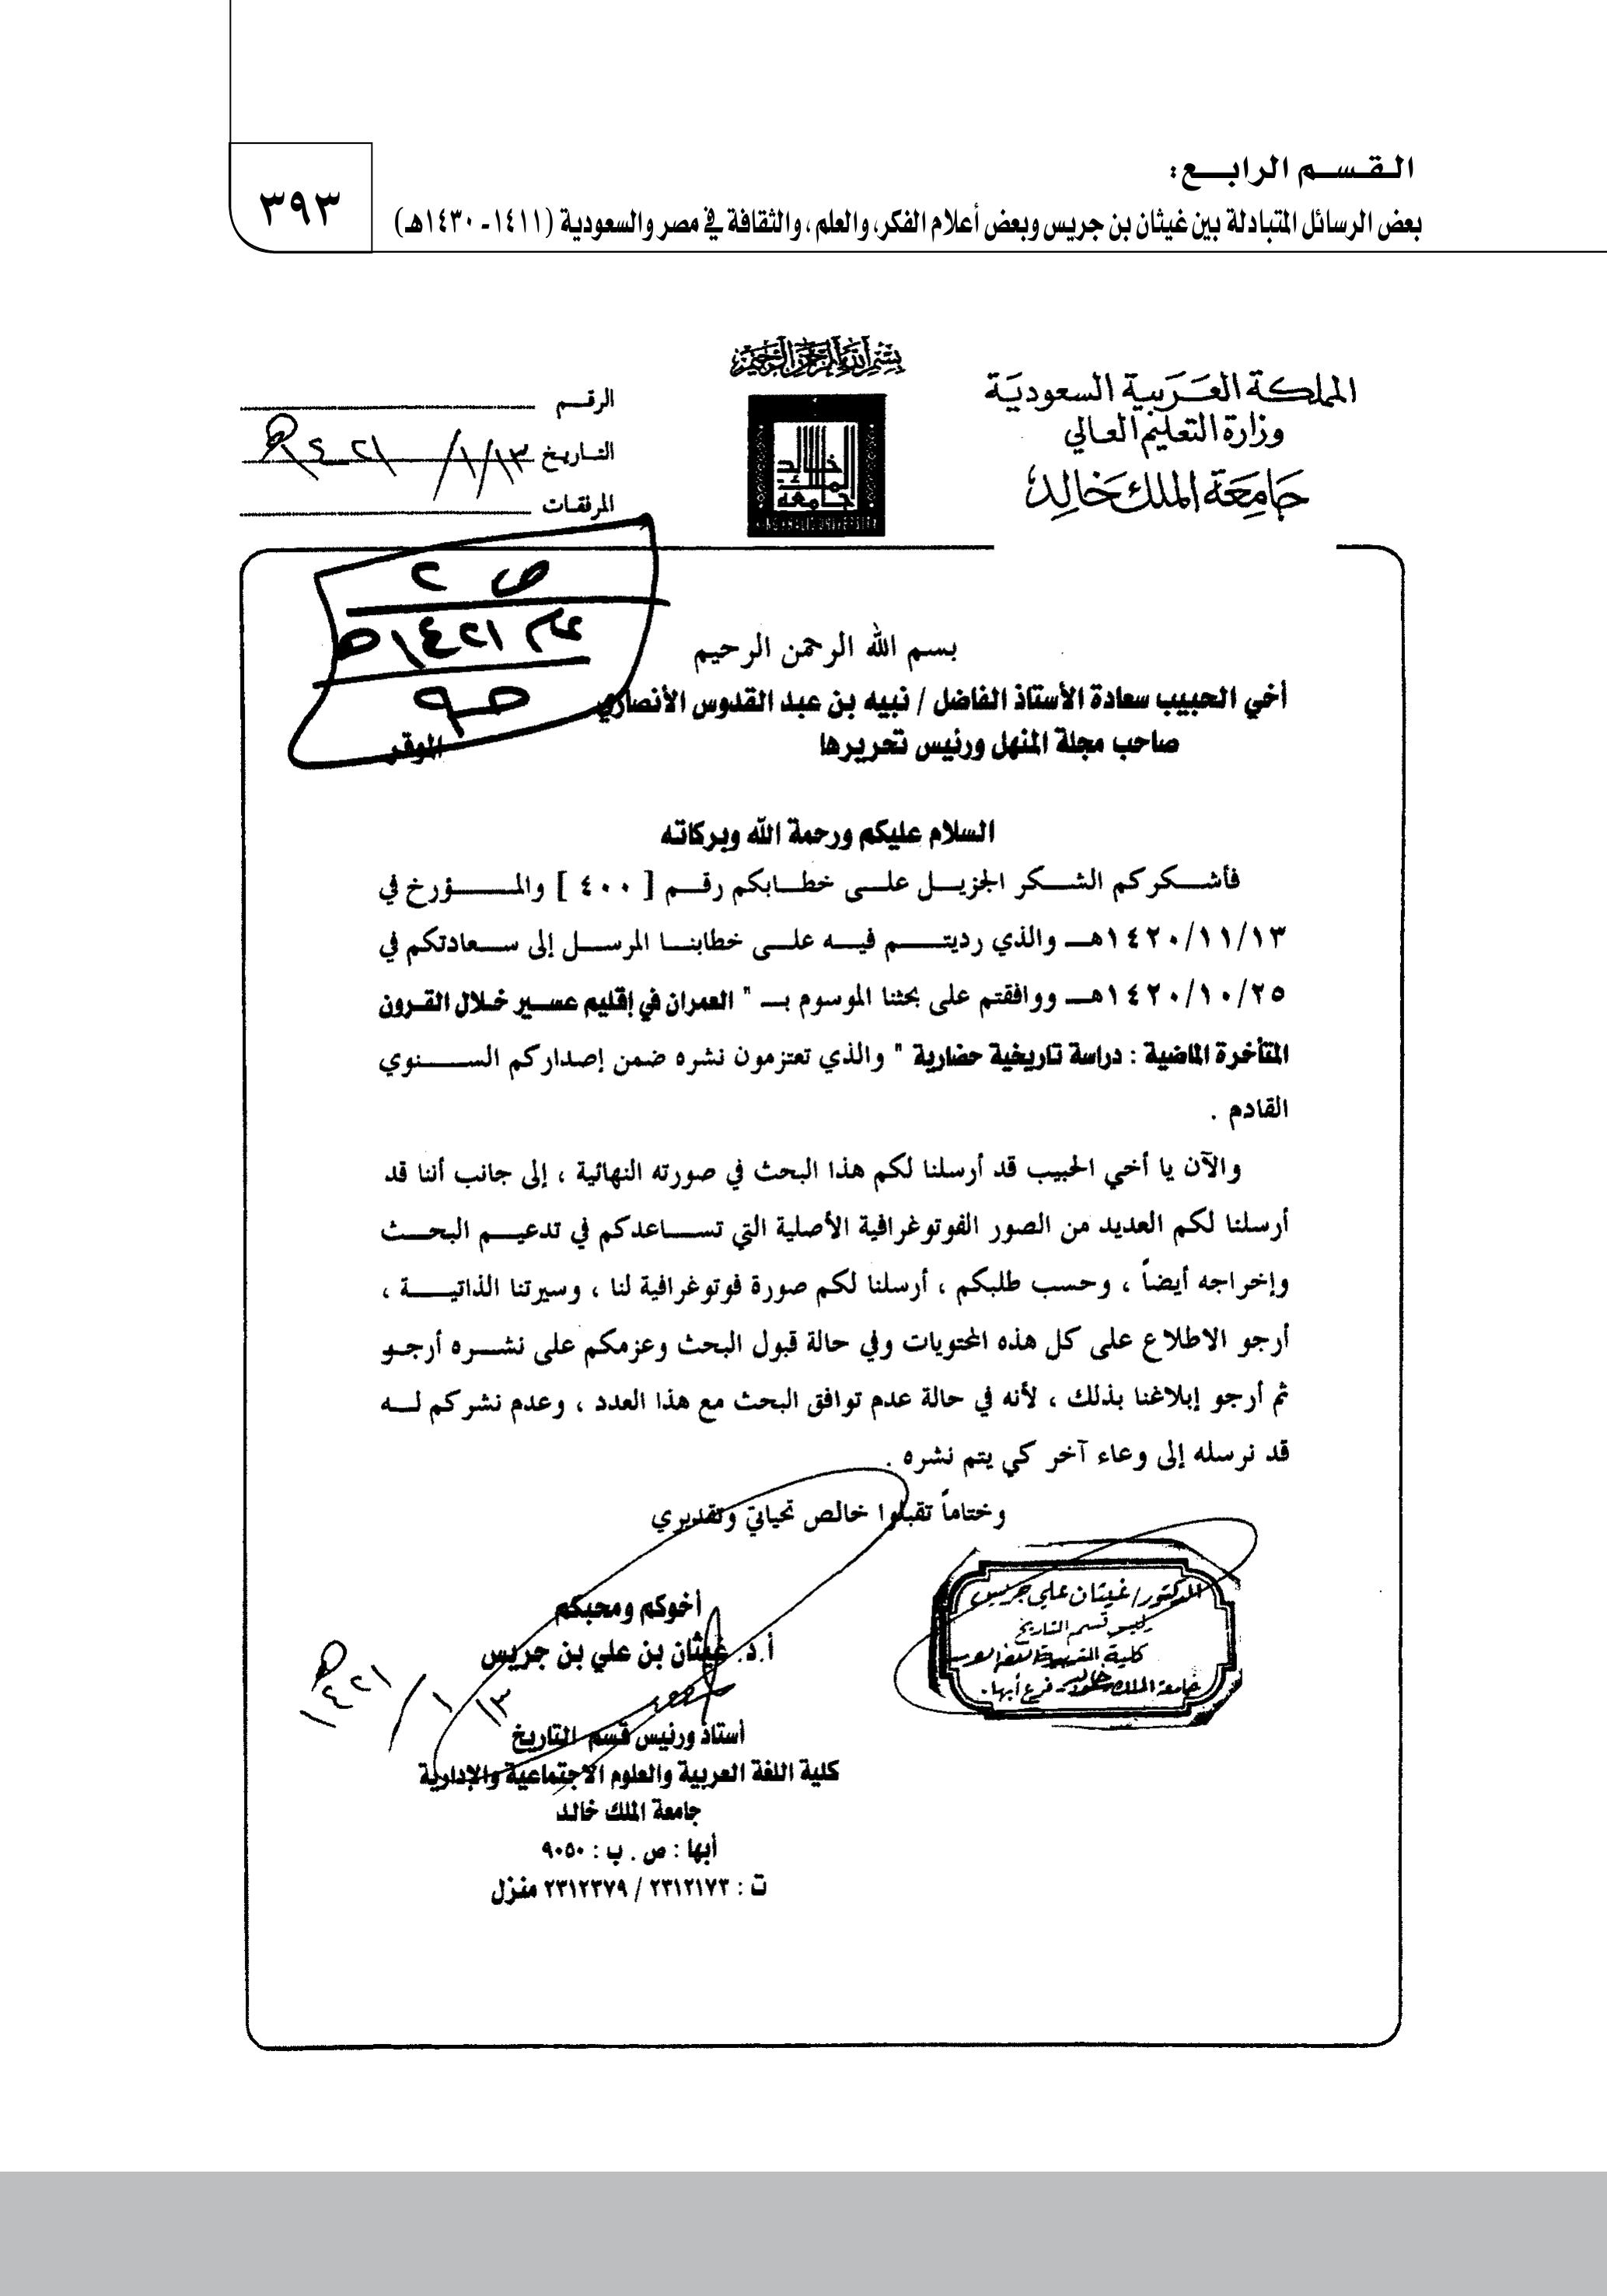 القسم الرابع:
بعض الرسائل المتبادلة بين غيثان بن جريس وبعض أعلام الفكر، والعلم، والثقافة في مصر والسعودية (١٤١١- ١٤٣٠هـ)
٣٩٣
بسم الله الرحمن الرحيم
المملكة العربية السعودية
وزارة التعليم العالي
جامعة الملك خالد
جامعة الملك خالد
KING KHALID UNIVERSITY
الرقم
التاريخ ١٣/١/١٤٢١هـ
المرفقات
ص ٢
١٤٢١هـ
بسم الله الرحمن الرحيم
أخي الحبيب سعادة الأستاذ الفاضل / نبيه بن عبد القدوس الأنصاري
صاحب مجلة المنهل ورئيس تحريرها الموقر
السلام عليكم ورحمة الله وبركاته
فأشكركم الشكر الجزيل على خطابكم رقم [ ٤٠٠ ] والمؤرخ في
١٤٢٠/١١/١٣هـ والذي رديتم فيه على خطابنا المرسل إلى سعادتكم في
١٤٢٠/١٠/٢٥هـ ووافقتم على بحثنا الموسوم بـ " العمران في إقليم عسير خلال القرون
المتأخرة الماضية : دراسة تاريخية حضارية " والذي تعتزمون نشره ضمن إصداركم السنوي
القادم .
والآن يا أخي الحبيب قد أرسلنا لكم هذا البحث في صورته النهائية ، إلى جانب أننا قد
أرسلنا لكم العديد من الصور الفوتوغرافية الأصلية التي تساعدكم في تدعيم البحث
وإخراجه أيضاً ، وحسب طلبكم ، أرسلنا لكم صورة فوتوغرافية لنا ، وسيرتنا الذاتية ،
أرجو الاطلاع على كل هذه المحتويات وفي حالة قبول البحث وعزمكم على نشره أرجو
ثم أرجو إبلاغنا بذلك ، لأنه في حالة عدم توافق البحث مع هذا العدد ، وعدم نشركم له
قد نرسله إلى وعاء آخر كي يتم نشره .
وختاماً تقبلوا خالص تحياتي وتقديري
أخوكم ومحبكم
أ.د. غيثان بن علي بن جريس
١٣/١/١٤٢١هـ
أستاذ ورئيس قسم التاريخ
كلية اللغة العربية والعلوم الاجتماعية والإدارية
جامعة الملك خالد
أبها : ص . ب : ٩٠٥٠
ت : ٢٣١٢١٧٣ / ٢٣١٢٣٧٩ منزل
الدكتور/ غيثان علي جريس
رئيس قسم التاريخ
كلية
جامعة الملك فرع أبها